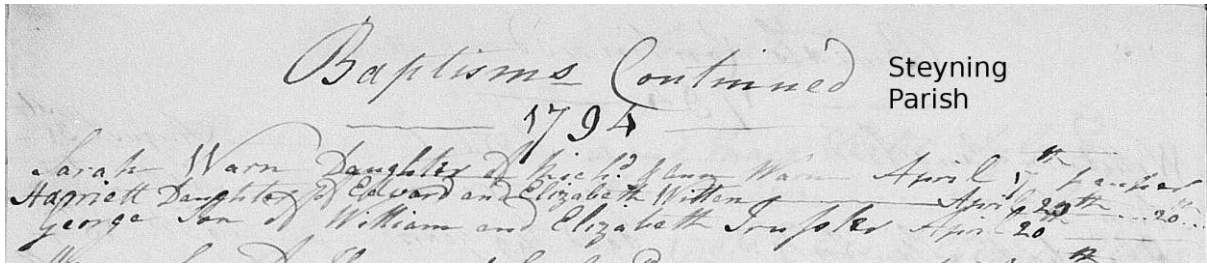 Baptisms Continued
Steyning
Parish
1794
Sarah Warn Daughter of Richd. & Ann Warn April
Harriett Daughter of Edward and Elizabeth Witten April 20th 20th
George Son of William and Elizabeth Trussler April 20th